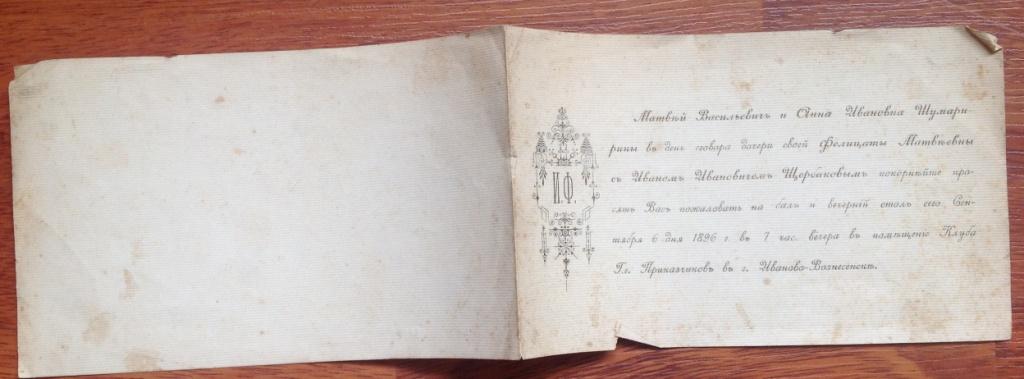 И.Ф.
Матвѣй Васильевичъ и Анна Ивановна Шумари-
рины въ день сговора дочери своей Фелицаты Матвѣевны
съ Иваномъ Ивановичемъ Щербаковымъ покорнѣйше про-
сятъ Васъ пожаловать на балъ и вечерній столъ сего Сен-
тября 6 дня 1896 г. въ 7 час. вечера въ помѣщеніе Клуба
Гг. Приказчиковъ въ г. Иваново-Вознесенскѣ.